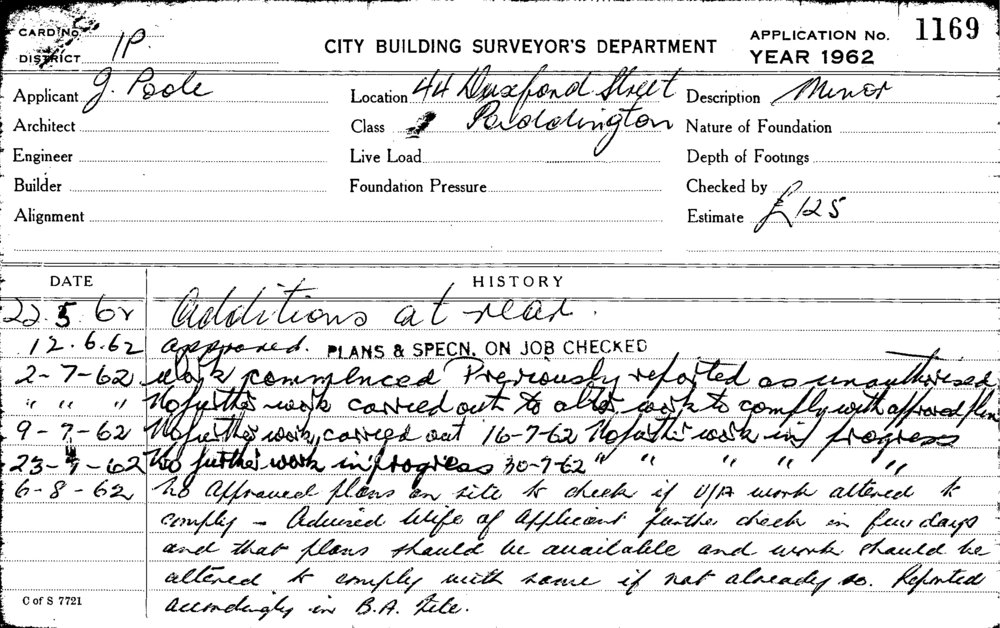 CARD No.
DISTRICT 1P.
CITY BUILDING SURVEYOR'S DEPARTMENT
APPLICATION No. 1169
YEAR 1962
Applicant J. Poole
Location 44 Duxford Street
Description Minor
Architect
Class Paddington
Nature of Foundation
Engineer
Live Load
Depth of Footings
Builder
Foundation Pressure
Checked by
Alignment
Estimate £125
DATE HISTORY
22.5.62 Additions at rear.
12.6.62 approved. PLANS & SPECN. ON JOB CHECKED
2-7-62 Work commenced Previously reported as unauthorised
" " " No further work carried out to alter work to comply with approved plan
9-7-62 No further work carried out 16-7-62 No further work in progress
23-7-62 No further work in progress 30-7-62 " " " " "
6-8-62 No Approved plans on site to check if U/A work altered to
comply - Advised Wife of Applicant further check in few days
and that plans should be available and work should be
altered to comply with same if not already so. Reported
accordingly in B.A. File.
C of S 7721